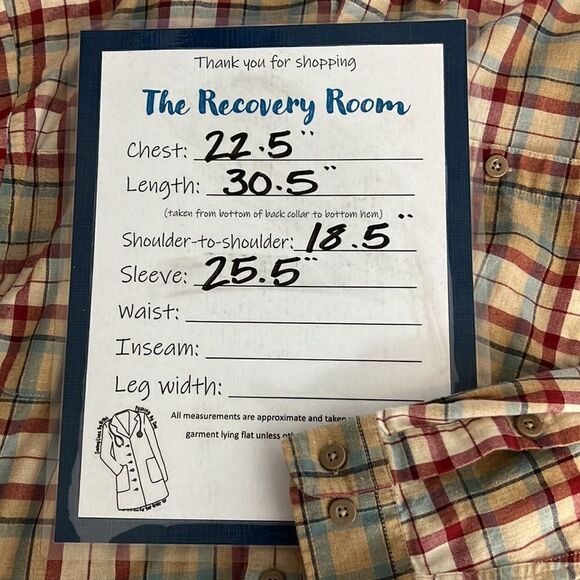 Thank you for shopping
The Recovery Room
Chest: 22.5"
Length: 30.5"
(taken from bottom of back collar to bottom hem)
Shoulder-to-shoulder: 18.5"
Sleeve: 25.5"
Waist:
Inseam:
Leg width:
All measurements are approximate and taken
garment lying flat unless